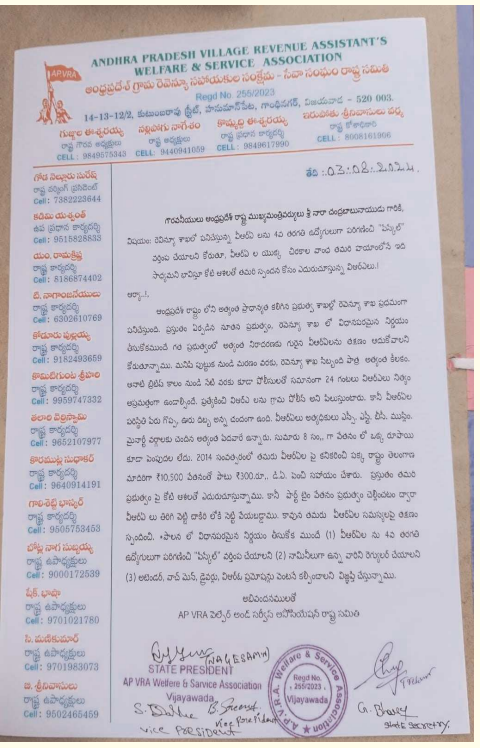 ANDHRA PRADESH VILLAGE REVENUE ASSISTANT'S
WELFARE & SERVICE ASSOCIATION
AP.VRA
ఆంధ్రప్రదేశ్ గ్రామ రెవెన్యూ సహాయకుల సంక్షేమ - సేవా సంఘం రాష్ట్ర సమితి
Regd No. 255/2023
14-13-12/2, కుటుంబరావు స్ట్రీట్, హనుమాన్‌పేట, గాంధీనగర్, విజయవాడ - 520 003.
గుజ్జల ఈశ్వరయ్య
రాష్ట్ర గౌరవ అధ్యక్షులు
CELL : 9849575343
నల్లిపోగు నాగేశం
రాష్ట్ర అధ్యక్షులు
CELL: 9440941059
కొమ్మద్ది ఈశ్వరయ్య
రాష్ట్ర ప్రధాన కార్యదర్శి
CELL : 9849617990
శ్రీనివాసులు వర్మ
రాష్ట్ర కోశాధికారి
CELL : 8008161906
తేది : 03:08:2024
గోడ నల్లూరు సురేష్
రాష్ట్ర వర్కింగ్ ప్రెసిడెంట్
Cell: 7382223644
కడిమి యశ్వంత్
ఉప ప్రధాన కార్యదర్శి
Cell : 9515828833
యం. రామకృష్ణ
రాష్ట్ర కార్యదర్శి
Cell : 8186874402
టి. నాగాంజనేయులు
రాష్ట్ర కార్యదర్శి
Cell : 6302610769
కోడూరు పుల్లయ్య
రాష్ట్ర కార్యదర్శి
Cell : 9182493659
కొమిటిగుంట శ్రీహరి
రాష్ట్ర కార్యదర్శి
Cell : 9959747332
తలారి వెర్రిస్వామి
రాష్ట్ర కార్యదర్శి
Cell : 9652107977
కొరముట్ల సుధాకర్
రాష్ట్ర కార్యదర్శి
Cell : 9640914191
గాలిశెట్టి భాస్కర్
రాష్ట్ర కార్యదర్శి
Cell : 9505753453
బోట్ల నాగ సుబ్బయ్య
రాష్ట్ర ఉపాధ్యక్షులు
Cell : 9000172539
షేక్. భాషా
రాష్ట్ర ఉపాధ్యక్షులు
Cell : 9701021780
సి. మణికుమార్
రాష్ట్ర ఉపాధ్యక్షులు
Cell : 9701983073
ఇ. శ్రీనివాసులు
రాష్ట్ర ఉపాధ్యక్షులు
Cell : 9502465459
గౌరవనీయులు ఆంధ్రప్రదేశ్ రాష్ట్ర ముఖ్యమంత్రివర్యులు శ్రీ నారా చంద్రబాబునాయుడు గారికి,
విషయం: రెవెన్యూ శాఖలో పనిచేస్తున్న వీఆర్ఏ లను 4వ తరగతి ఉద్యోగులుగా పరిగణించి "పేస్కేల్"
వర్తింప చేయాలని కోరుతూ, వీఆర్ఏ ల యొక్క చిరకాల వాంఛ తమరి హయాంలోనే ఇది
సాధ్యమని భావిస్తూ కోటి ఆశలతో తమరి స్పందన కోసం ఎదురుచూస్తున్న వీఆర్ఏలు.!
ఆర్యా..!,
ఆంధ్రప్రదేశ్ రాష్ట్రం లోని అత్యంత ప్రాధాన్యత కలిగిన ప్రభుత్వ శాఖల్లో రెవెన్యూ శాఖ ప్రథమంగా
పనిచేస్తుంది. ప్రస్తుతం ఏర్పడిన నూతన ప్రభుత్వం, రెవెన్యూ శాఖ లో విధానపరమైన నిర్ణయం
తీసుకోకముందే గత ప్రభుత్వంలో అత్యంత నిరాదరణకు గురైన వీఆర్ఏలను తక్షణం ఆదుకోవాలని
కోరుతున్నాము. మనిషి పుట్టుక నుండి మరణం వరకు, రెవెన్యూ శాఖ సిబ్బంది పాత్ర అత్యంత కీలకం.
ఆనాటి బ్రిటిష్ కాలం నుండి నేటి వరకు కూడా పోలీసులతో సమానంగా 24 గంటలు వీఆర్ఏలు నిత్యం
అప్రమత్తంగా ఉండాల్సిందే. ప్రత్యేకించి వీఆర్ఏ లను గ్రామ పోలీస్ అని పిలుస్తుంటారు. కానీ వీఆర్ఏల
పరిస్థితి పేరు గొప్ప, ఊరు దిబ్బ అన్న చందంగా ఉంది. వీఆర్ఏలు అత్యధికులు ఎస్సీ, ఎస్టీ, బీసీ, ముస్లిం,
మైనార్టీ వర్గాలకు చెందిన అత్యంత పేదవారే ఉన్నారు. సుమారు 8 సం., గా వేతనం లో ఒక్క రూపాయి
కూడా పెంపుదల లేదు. 2014 సంవత్సరంలో తమరు వీఆర్ఏల పై కనికరించి పక్క రాష్ట్రం తెలంగాణ
మాదిరిగా ₹10,500 వేతనంతో పాటు ₹300.రూ,. డి.ఏ. పెంచి సహాయం చేశారు. ప్రస్తుతం తమరి
ప్రభుత్వం పై కోటి ఆశలతో ఎదురుచూస్తున్నాము. కానీ పార్ట్ టైం వేతనం ప్రభుత్వం చెల్లించటం ద్వారా
వీఆర్ఏ లు తిరిగి వెట్టి చాకిరి లోకి నెట్టి వేయబడ్డాము. కావున తమరు వీఆర్ఏల సమస్యలపై తక్షణం
స్పందించి, పాలన లో విధానపరమైన నిర్ణయం తీసుకోక ముందే (1) వీఆర్ఏ లను 4వ తరగతి
ఉద్యోగులుగా పరిగణించి "పేస్కేల్" వర్తింప చేయాలని (2) నామినీలుగా ఉన్న వారిని రెగ్యులర్ చేయాలని
(3) అటెండర్, వాచ్ మెన్, డ్రైవర్లు, వీఆర్ఓ ప్రమోషన్లు వెంటనే కల్పించాలని విజ్ఞప్తి చేస్తున్నాము.
అభివందనములతో
AP VRA వెల్ఫేర్ అండ్ సర్వీస్ అసోసియేషన్ రాష్ట్ర సమితి
(NAGESAM N)
STATE PRESIDENT
AP VRA Welfere & Sarvice Association
Vijayawada
Vice President
vice president
A.P.V.R.A. Welfare & Service Association
Regd No.
255/2023
Vijayawada
G. Bhaskar
state secretary